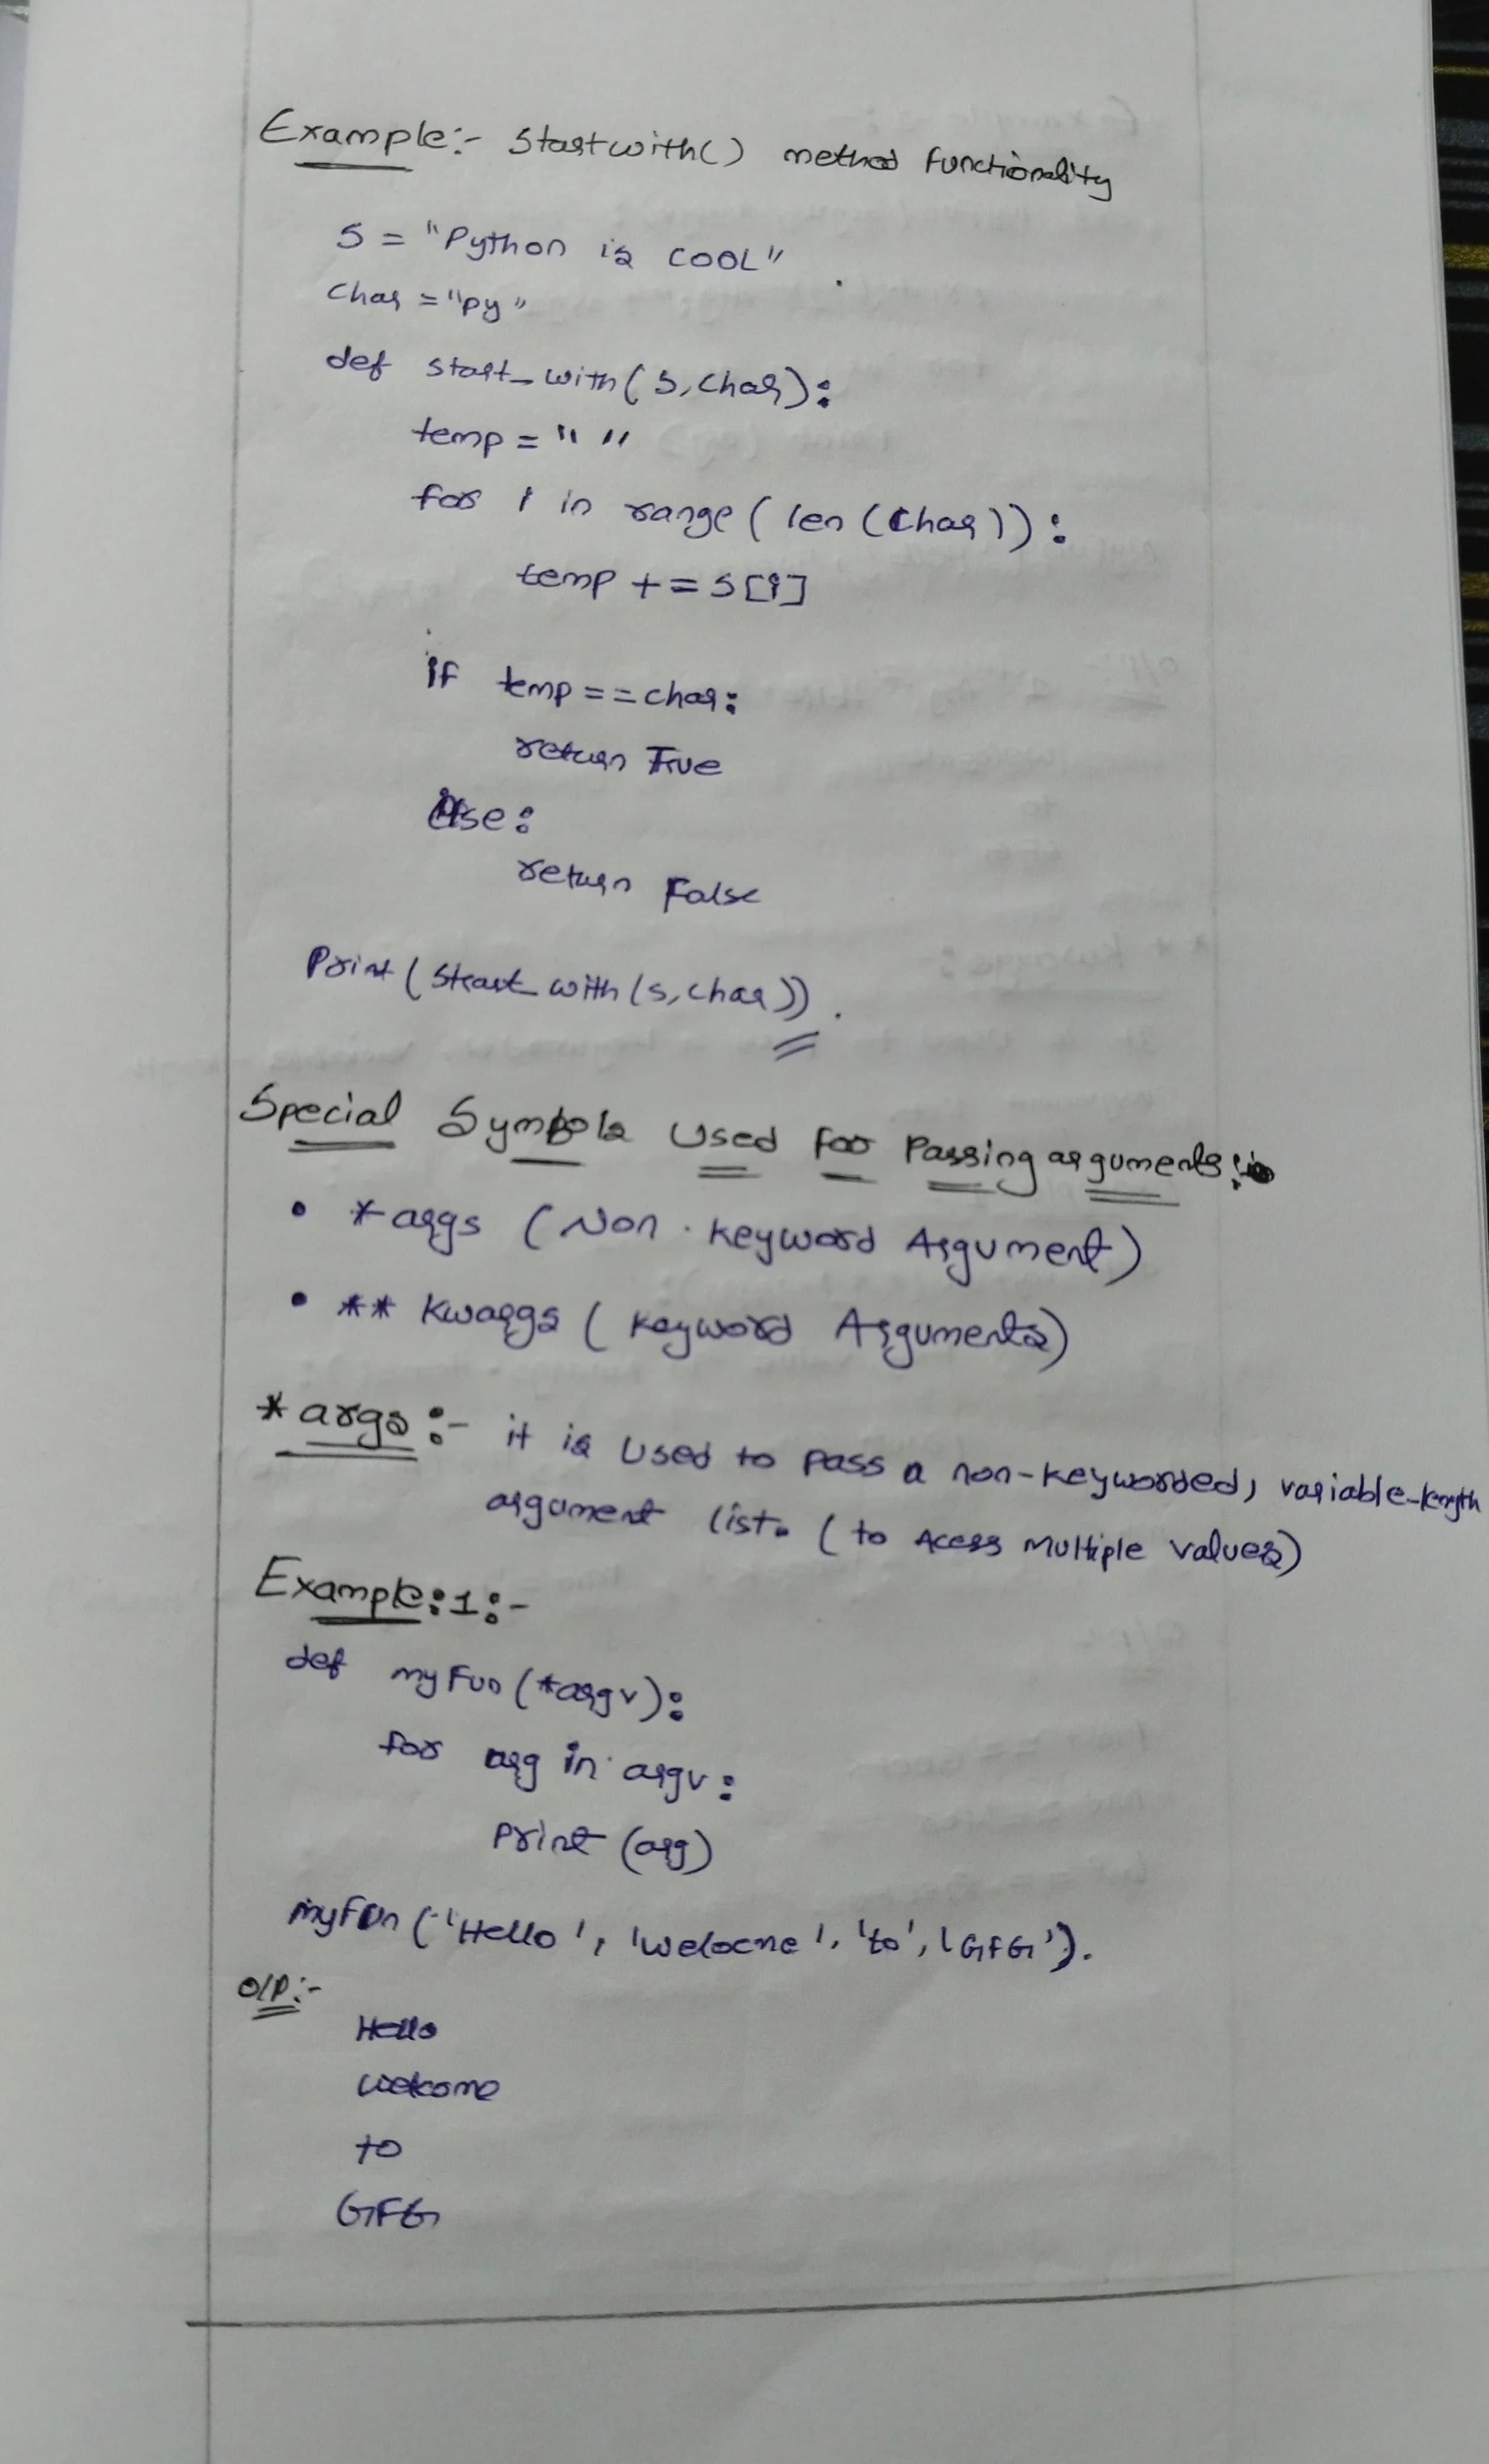 Example:- Startwith() method functionality
S = "Python is COOL"
Char = "py"
def start_with(s,char):
temp = " "
for i in range(len(char)):
temp += s[i]
if temp == char:
return True
else:
return False
Print(Start_with(s,char)).
Special Symbols Used for Passing arguments:
• *args (Non-keyword Argument)
• ** Kwargs (Keyword Arguments)
*args:- it is used to pass a non-keyworded, variable-length
argument list. (to Acess multiple values)
Example:1:-
def myFun(*argv):
for arg in argv:
Print (arg)
myFun('Hello', 'Welocne', 'to', 'GFG').
O/P:-
Hello
welcome
to
GFG